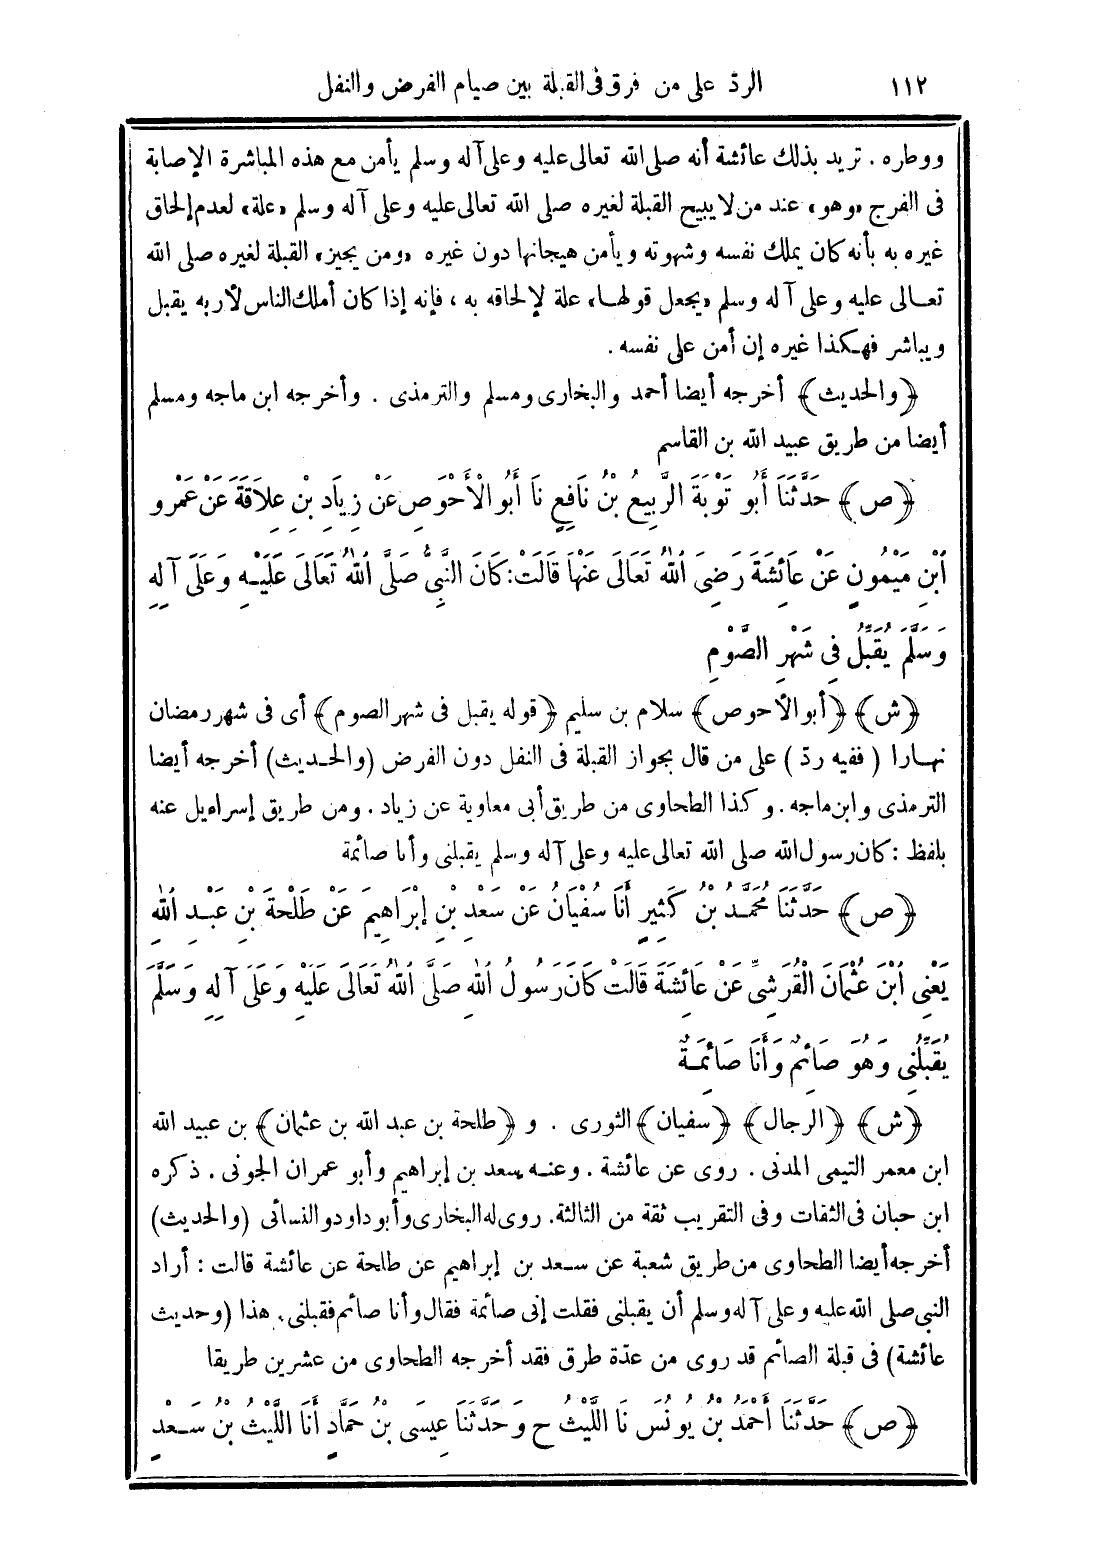 ١١٢ الردّ على من فرق فى القبلة بين صيام الفرض والنفل
ووطره . تريد بذلك عائشة أنه صلى الله تعالى عليه وعلى آله وسلم يأمن مع هذه المباشرة الإصابة
فى الفرج «وهو» عند من لا يبيح القبلة لغيره صلى الله تعالى عليه وعلى آله وسلم «علة» لعدم إلحاق
غيره به بأنه كان يملك نفسه وشهوته ويأمن هيجانها دون غيره «ومن يجيز» القبلة لغيره صلى الله
تعالى عليه وعلى آله وسلم «يجعل قولها» علة لإلحاقه به ، فإنه إذا كان أملك الناس لأربه يقبل
ويباشر فهكذا غيره إن أمن على نفسه .
﴿والحديث﴾ أخرجه أيضا أحمد والبخارى ومسلم والترمذى . وأخرجه ابن ماجه ومسلم
أيضا من طريق عبيد الله بن القاسم
﴿ص﴾ حَدَّثَنَا أَبُو تَوْبَةَ الرَّبِيعُ بْنُ نَافِعٍ نَا أَبُو الْأَحْوَصِ عَنْ زِيَادِ بْنِ عِلَاقَةَ عَنْ عَمْرِو
اَبْنِ مَيْمُونٍ عَنْ عَائِشَةَ رَضِىَ اَللهُ تَعَالَى عَنْهَا قَالَتْ: كَانَ النَّبِىُّ صَلَّى اَللهُ تَعَالَى عَلَيْهِ وَعَلَى آلِهِ
وَسَلَّمَ يُقَبِّلُ فِى شَهْرِ الصَّوْمِ
﴿ش﴾ ﴿أبو الأحوص﴾ سلام بن سليم ﴿قوله يقبل فى شهر الصوم﴾ أى فى شهر رمضان
نهارا ( ففيه ردّ ) على من قال بجواز القبلة فى النفل دون الفرض (والحديث) أخرجه أيضا
الترمذى وابن ماجه . وكذا الطحاوى من طريق أبى معاوية عن زياد . ومن طريق إسراءيل عنه
بلفظ : كان رسول الله صلى الله تعالى عليه وعلى آله وسلم يقبلنى وأنا صائمة
﴿ص﴾ حَدَّثَنَا مُحَمَّدُ بْنُ كَثِيرٍ أَنَا سُفْيَانُ عَنْ سَعْدِ بْنِ إِبْرَاهِيمَ عَنْ طَلْحَةَ بْنِ عَبْدِ اَللهِ
يَعْنِى اَبْنَ عُثْمَانَ الْقُرَشِىِّ عَنْ عَائِشَةَ قَالَتْ كَانَ رَسُولُ اَللهِ صَلَّى اَللهُ تَعَالَى عَلَيْهِ وَعَلَى آلِهِ وَسَلَّمَ
يُقَبِّلُنِى وَهُوَ صَائِمٌ وَأَنَا صَائِمَةٌ
﴿ش﴾ ﴿الرجال﴾ ﴿سفيان﴾ الثورى . و ﴿طلحة بن عبد الله بن عثمان﴾ بن عبيد الله
ابن معمر التيمى المدنى . روى عن عائشة . وعنه سعد بن إبراهيم وأبو عمران الجونى . ذكره
ابن حبان فى الثقات وفى التقريب ثقة من الثالثة. روى له البخارى وأبو داود والنسائى (والحديث)
أخرجه أيضا الطحاوى من طريق شعبة عن سعد بن إبراهيم عن طلحة عن عائشة قالت : أراد
النبى صلى الله عليه وعلى آله وسلم أن يقبلنى فقلت إنى صائمة فقال وأنا صائم فقبلنى. هذا (وحديث
عائشة) فى قبلة الصائم قد روى من عدّة طرق فقد أخرجه الطحاوى من عشرين طريقا
﴿ص﴾ حَدَّثَنَا أَحْمَدُ بْنُ يُونُسَ نَا اللَّيْثُ ح وَحَدَّثَنَا عِيسَى بْنُ حَمَّادٍ أَنَا اللَّيْثُ بْنُ سَعْدٍ